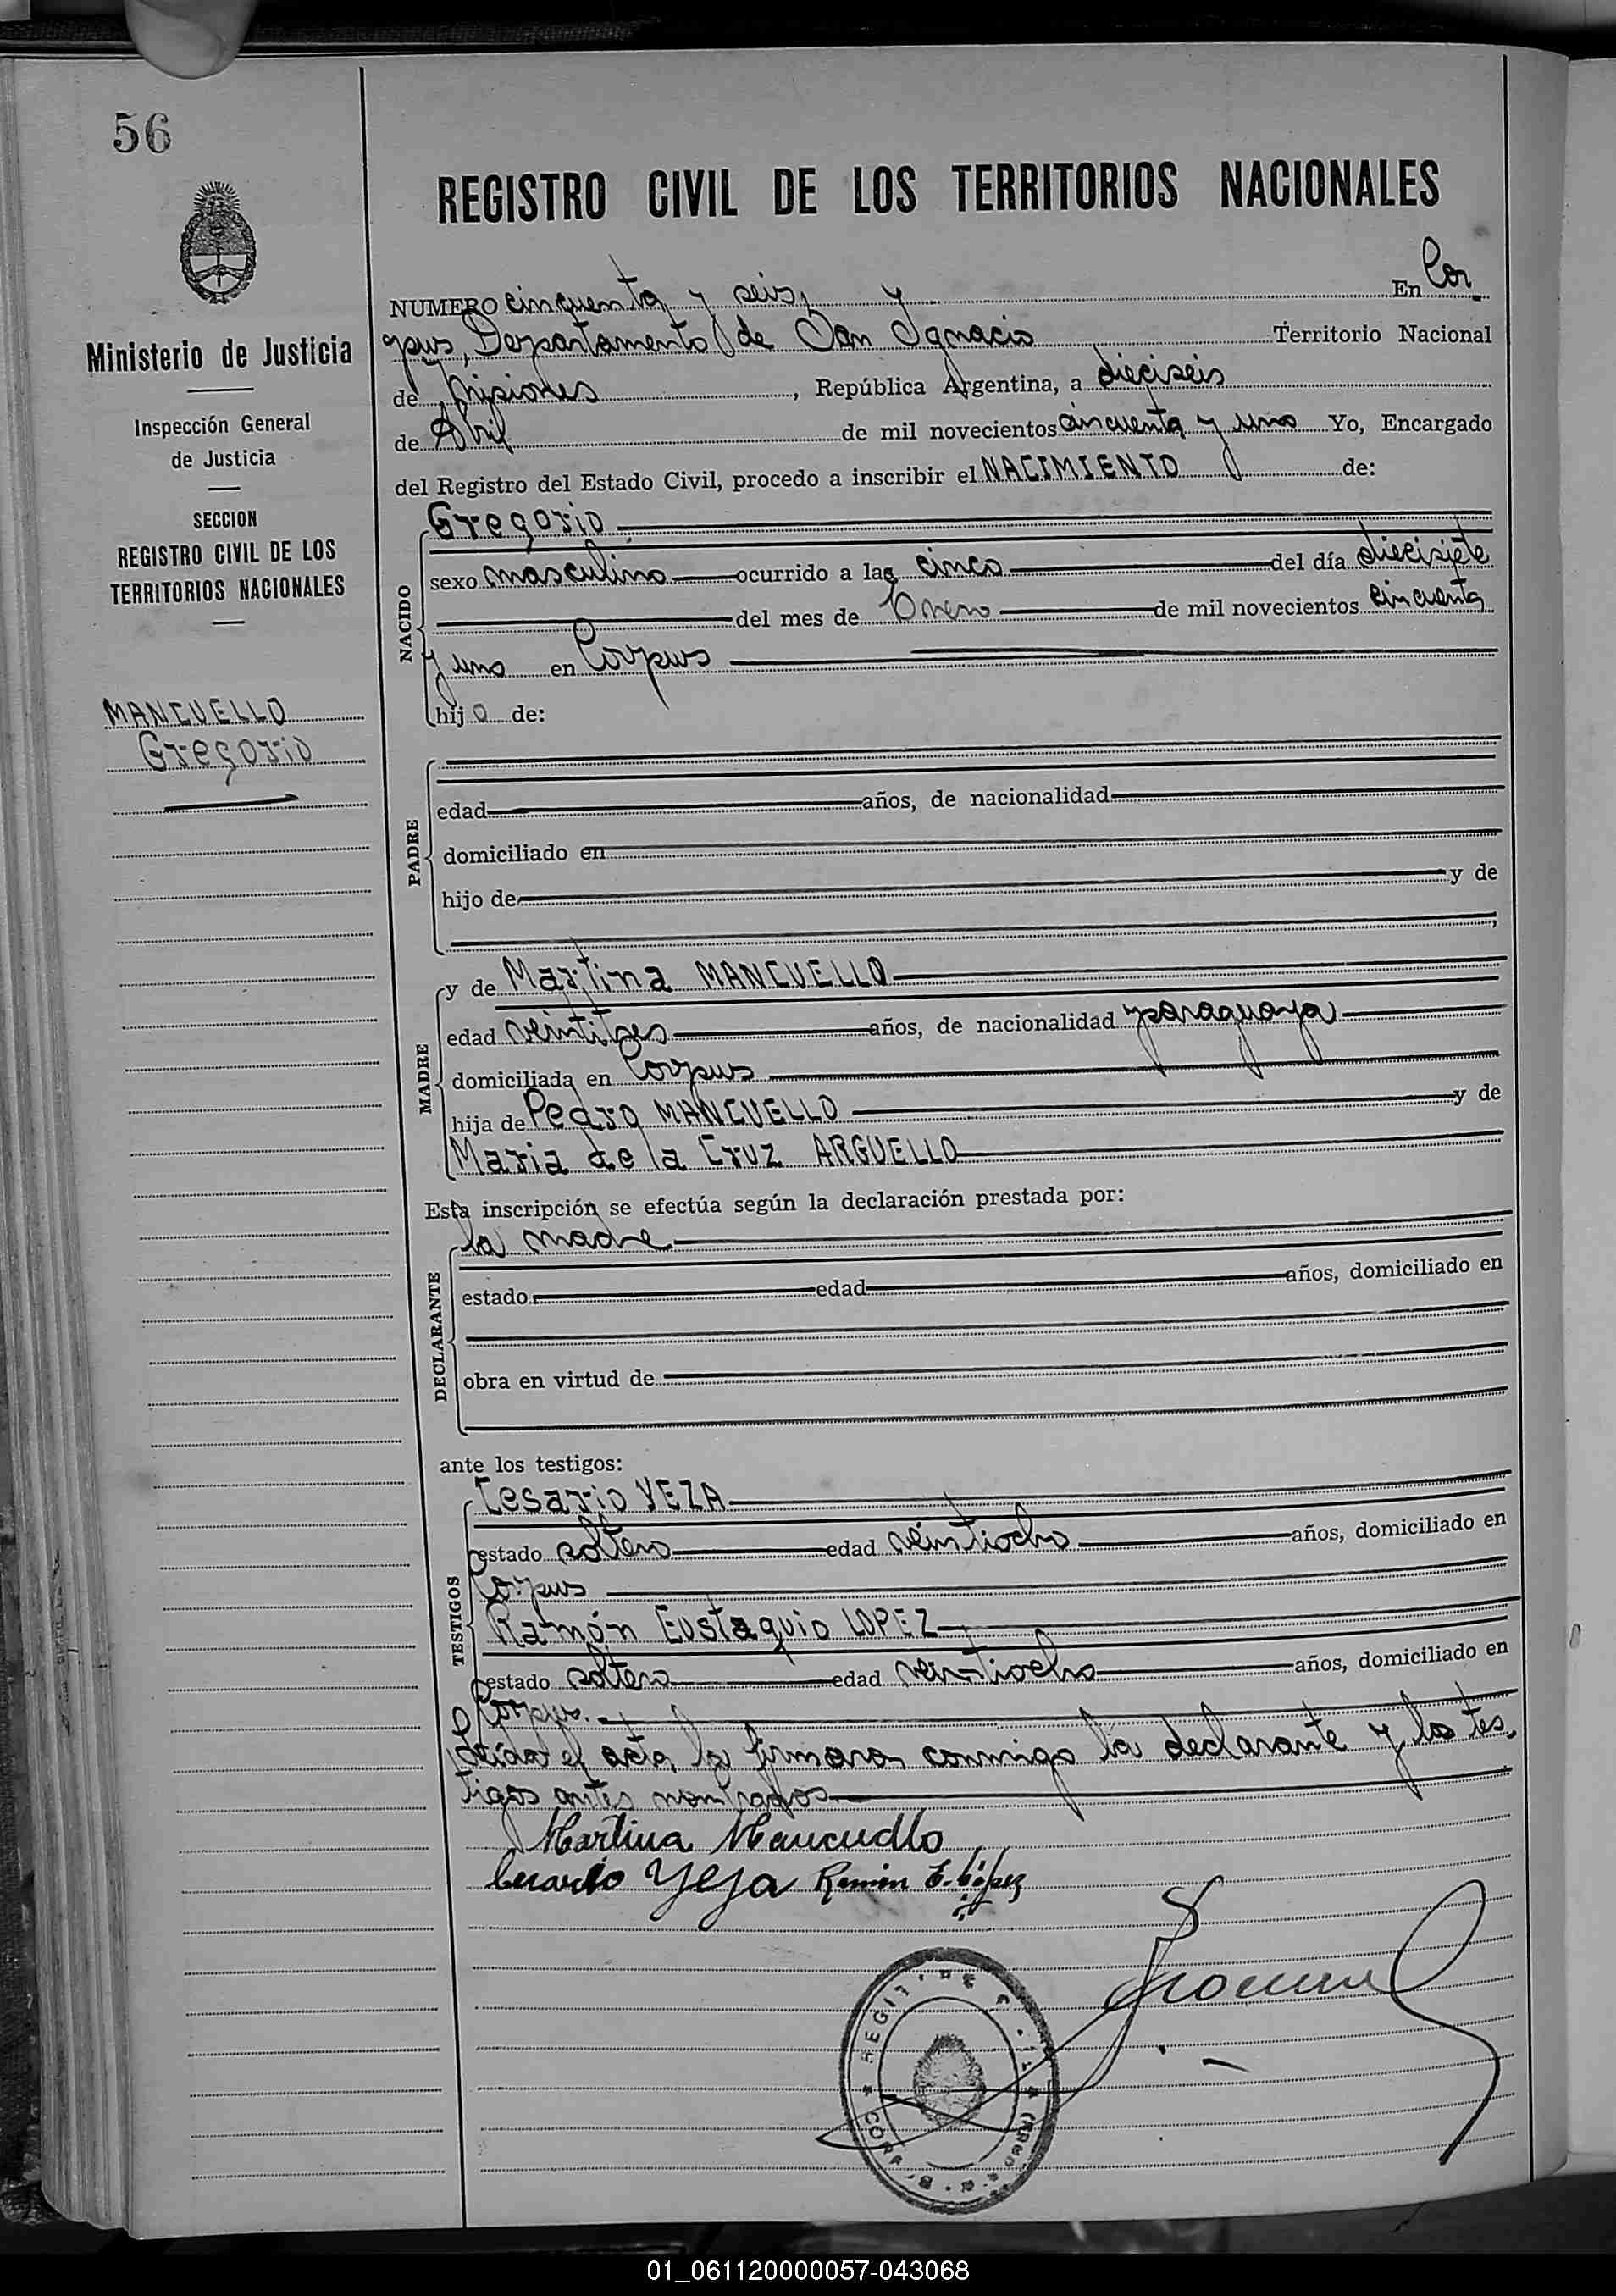 56
REGISTRO CIVIL DE LOS TERRITORIOS NACIONALES
Ministerio de Justicia
Inspección General
de Justicia
SECCION
REGISTRO CIVIL DE LOS
TERRITORIOS NACIONALES
MANCUELLO
Gregorio
NUMERO cinquenta y seis, y En Cor
pus, Departamento de San Ignacio Territorio Nacional
de Misiones, República Argentina, a dieciseis
de Abril de mil novecientos cincuenta y uno Yo, Encargado
del Registro del Estado Civil, procedo a inscribir el NACIMIENTO de:
NACIDO
Gregorio
sexo masculino ocurrido a las cinco del día diecisiete
del mes de Enero de mil novecientos cincuenta
y uno en Corpus
hijo de:
PADRE
edad años, de nacionalidad
domiciliado en
hijo de y de
MADRE
y de Martina MANCUELLO
edad veintitres años, de nacionalidad paraguaya
domiciliada en Corpus
hija de Pedro MANCUELLO y de
Maria de la Cruz ARGUELLO
Esta inscripción se efectúa según la declaración prestada por:
DECLARANTE
la madre
estado edad años, domiciliado en
obra en virtud de
ante los testigos:
TESTIGOS
Cesario YEZA
estado soltero edad veintiocho años, domiciliado en
Corpus
Ramón Eustaquio LOPEZ
estado soltero edad veintiocho años, domiciliado en
Corpus.
Leída el acta, la firmaron conmigo la declarante y los tes
tigos antes nombrados
Martina Mancuello
Cesario Yeza Ramón E. López
01_061120000057-043068